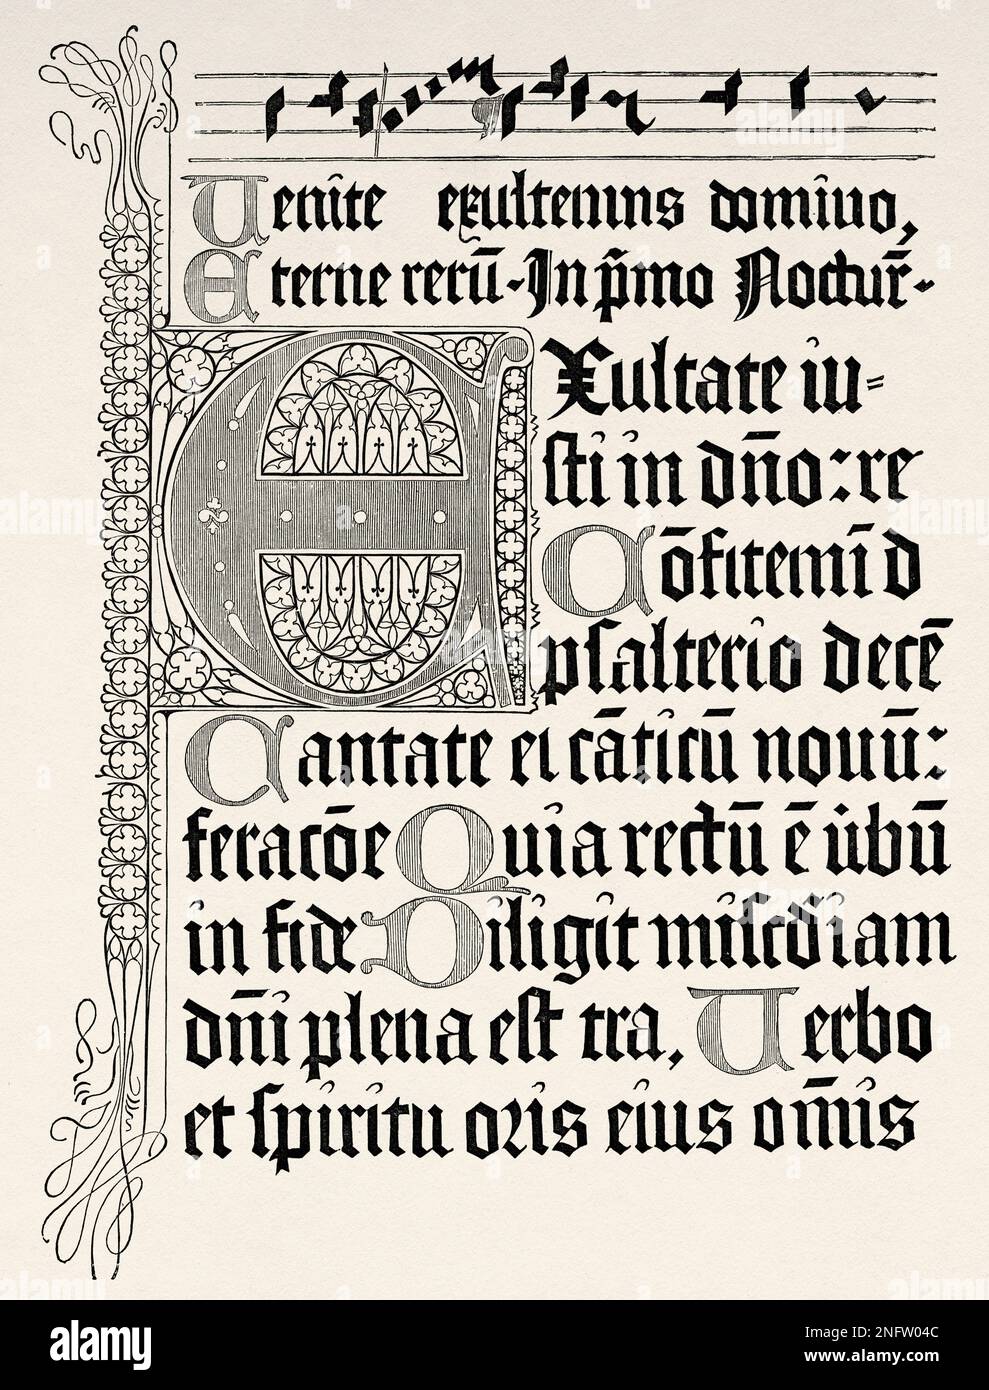 Venite exultemus domino,
Eterne rerū. In p̄mo Noctur̄.
EXultate iu=
sti in dn̄o: re
Cōfitemī d
psalterio decē
Cantate ei cāticū nouū:
feracōe Quia rectū ē v̄bū
in fide Diligit misc̄diam
dn̄i plena est tra, Verbo
et spiritu oris eius om̄is
alamy
Image ID: 2NFW04C
www.alamy.com